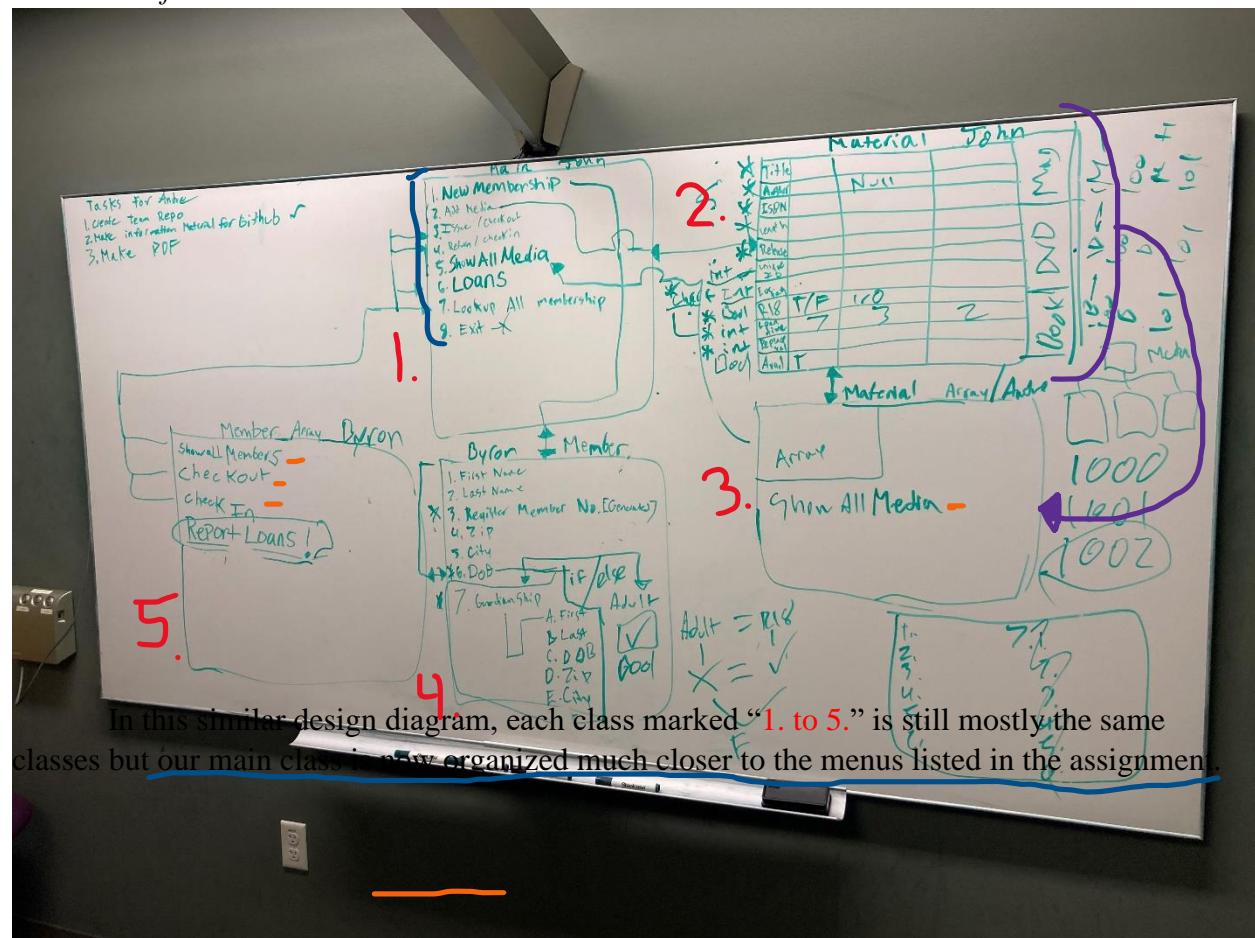 Tasks for Andre
1. Create Team Repo
2. Make information Material for Github ✓
3. Make PDF
Main John
1. New Membership
2. Add Media
3. Issue / checkout
4. Return / checkin
5. Show All Media
6. Loans
7. Lookup All membership
8. Exit
1.
Material John
2.
Title
Author
Null
ISBN
Length
Release
int
int
R18 T/F
7 3 2
int
int
Avail T
Mag
DVD
Book
Material Array / Andre
Array
3.
Show All Media
1000
1001
1002
Member Array Byron
Show all Members
Checkout
Check In
Report Loans!
5.
Byron Member
1. First Name
2. Last Name
3. Register Member No. [Generate]
4. Zip
5. City
6. DoB
if/else
7. Guardianship
A. First
B. Last
C. DOB
D. Zip
E. City
Adult
✓
4.
Adult = R18
X = ✓
F
1.
2.
3.
4.
In this similar design diagram, each class marked “1. to 5.” is still mostly the same
classes but our main class is now organized much closer to the menus listed in the assignment.